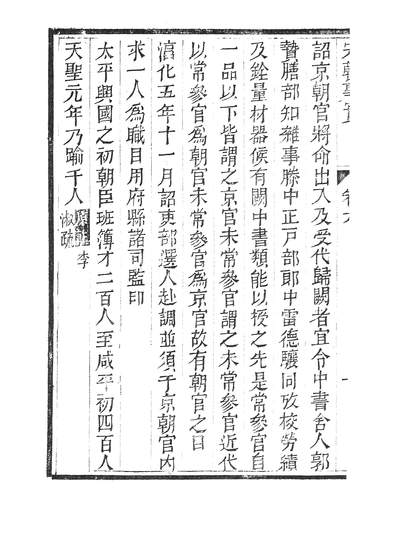 宋朝事實 卷九
詔京朝官將命出入及受代歸闕者宜令中書舍人郭
贄膳部知雜事滕中正戶部郎中雷德驤同攷校勞績
及銓量材器候有闕中書類能以授之先是常參官自
一品以下皆謂之京官未常參官謂之未常參官近代
以常參官爲朝官未常參官爲京官故有朝官之曰
淳化五年十一月詔吏部選人赴調並須于京朝官內
求一人爲職目用府縣諸司監印
太平興國之初朝臣班簿才二百人至咸平初四百人
天聖元年乃踰千人 李淑疏